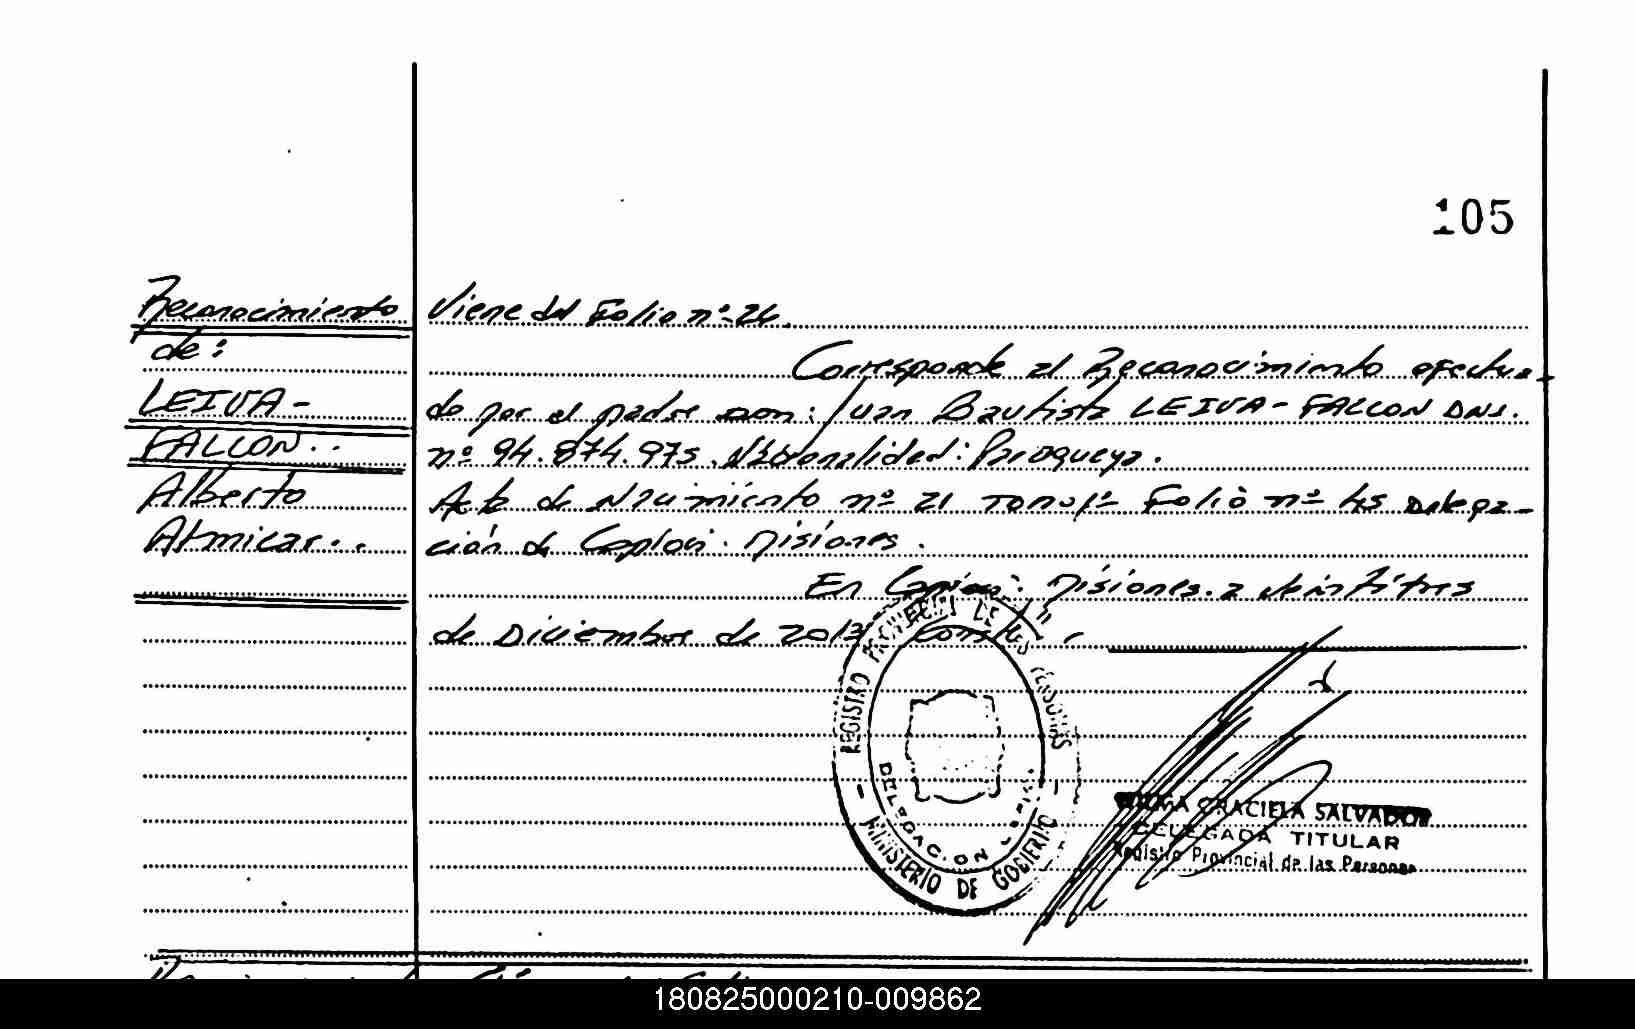 105
Reconocimiento
de:
LEIVA-
FALLON..
Alberto
Atmicar..
Viene del Folio nº 24.
Corresponde al Reconocimiento efectua-
do por el padre con: Juan Bautista LEIVA-FALLON DNI.
nº 94.874.975. Nacionalidad: Paraguaya.
Acta de Nacimiento nº 21 Tomo 1º Folio nº 45 Delega-
ción de Misiones.
En Misiones. a veintitres
de Diciembre de 2013
REGISTRO PROVINCIAL DE LAS PERSONAS
DELEGACION
MINISTERIO DE GOBIERNO
GRACIELA SALVADOR
DELEGADA TITULAR
Registro Provincial de las Personas
180825000210-009862